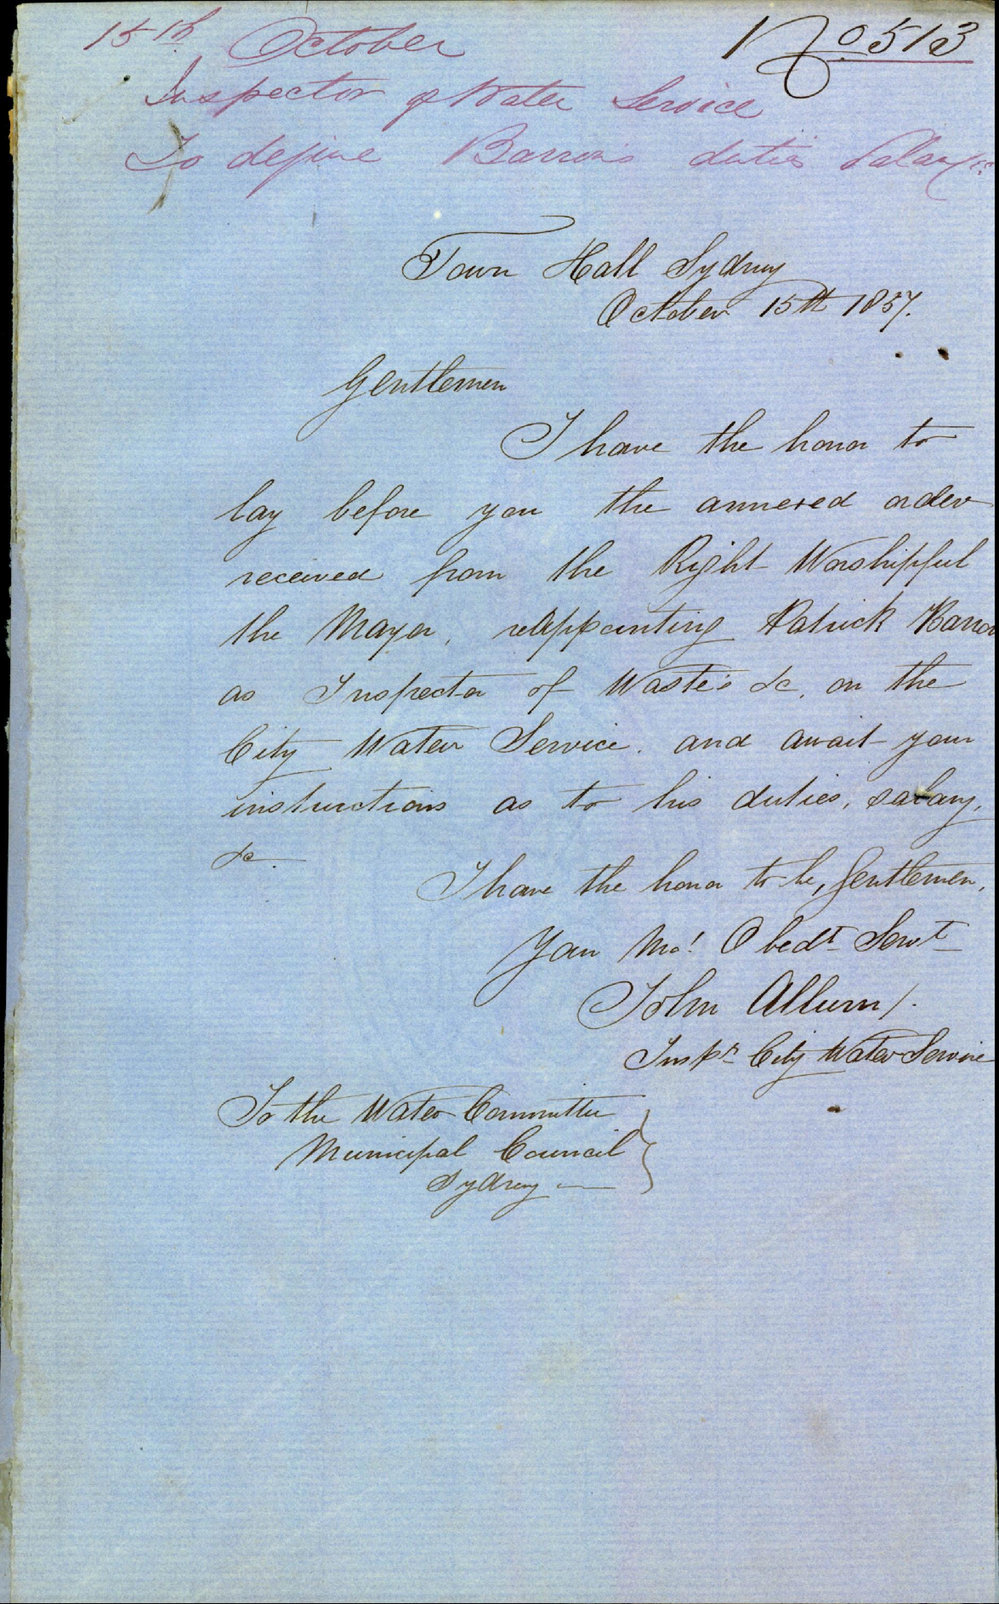 15th October
No 513
Inspector of Water Service
To define Barron's duties Salary &c
Town Hall Sydney
October 15th 1857.
Gentlemen
I have the honor to
lay before you the annexed order
received from the Right Worshipful
the Mayor, reAppointing Patrick Barron
as Inspector of Waste's &c, on the
City Water Service. and await your
instructions as to his duties, salary,
&c.
I have the honor to be, Gentlemen,
Your Mo! Obedt Servt
John Allurn/.
Inspr City Water Service
To the Water Committee
Municipal Council
Sydney —